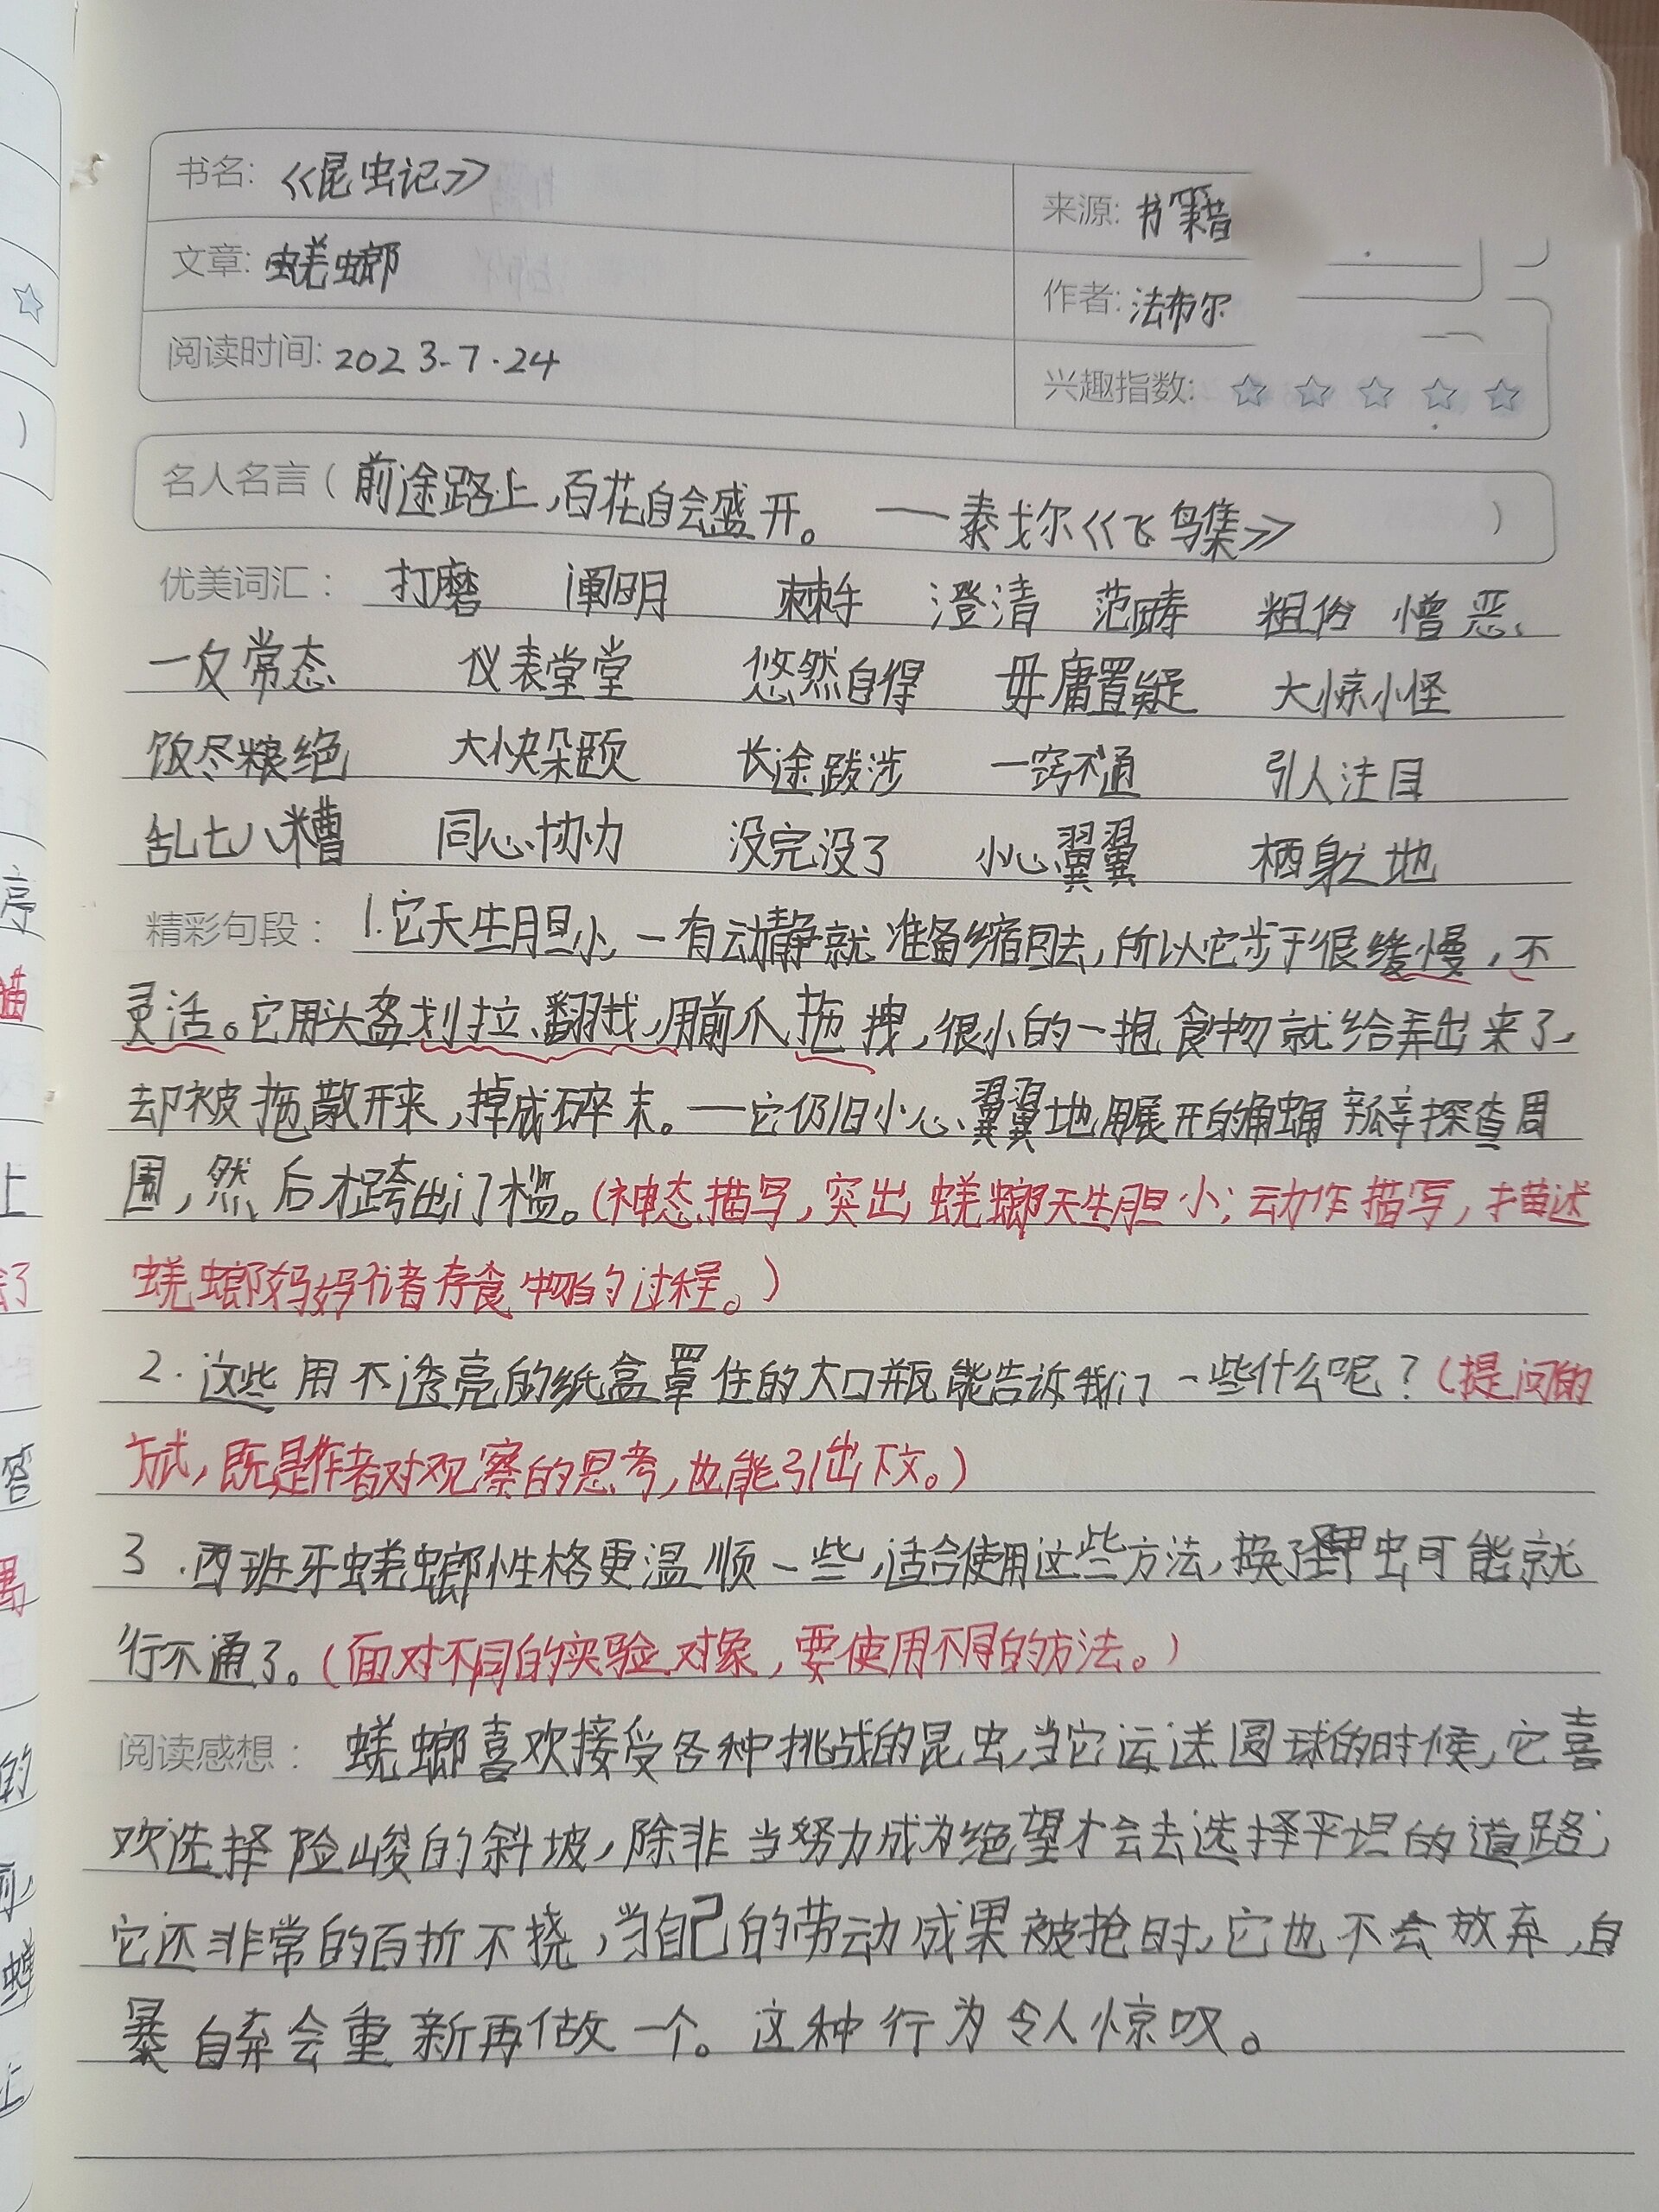 书名: 《昆虫记》
来源: 书籍
文章: 蜣螂
作者: 法布尔
阅读时间: 2023.7.24
兴趣指数: ☆ ☆ ☆ ☆ ☆
名人名言 ( 前途路上,百花自会盛开。 ——泰戈尔《飞鸟集》 )
优美词汇: 打磨 阐明 棘手 澄清 范畴 粗俗 憎恶
一反常态 仪表堂堂 悠然自得 毋庸置疑 大惊小怪
饭尽粮绝 大快朵颐 长途跋涉 一窍不通 引人注目
乱七八糟 同心协力 没完没了 小心翼翼 栖身之地
精彩句段: 1.它天生胆小,一有动静就准备缩回去,所以它步子很缓慢,不
灵活。它用头盔划拉、翻找,用前爪拖拽,很小的一抱食物就给弄出来了,
却被拖散开来,掉成碎末。——它仍旧小心翼翼地用展开的触角探查周
围,然后才跨出门槛。(神态描写,突出蜣螂天生胆小;动作描写,描述
蜣螂妈妈储存食物的过程。)
2.这些用不透亮的纸盒罩住的大口瓶能告诉我们一些什么呢?(提问的
方式,既是作者对观察的思考,也能引出下文。)
3.西班牙蜣螂性格更温顺一些,适合使用这些方法,换了甲虫可能就
行不通了。(面对不同的实验对象,要使用不同的方法。)
阅读感想: 蜣螂喜欢接受各种挑战的昆虫,当它运送圆球的时候,它喜
欢选择险峻的斜坡,除非当努力成为绝望才会去选择平坦的道路;
它还非常的百折不挠,当自己的劳动成果被抢时,它也不会放弃,自
暴自弃会重新再做一个。这种行为令人惊叹。